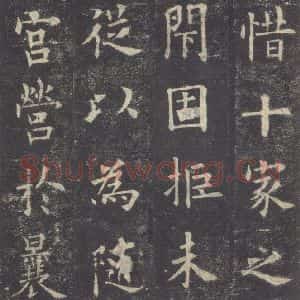 惜十家之
閇固拒未
從以為隨
宮營於曩
Shufawang.Cn